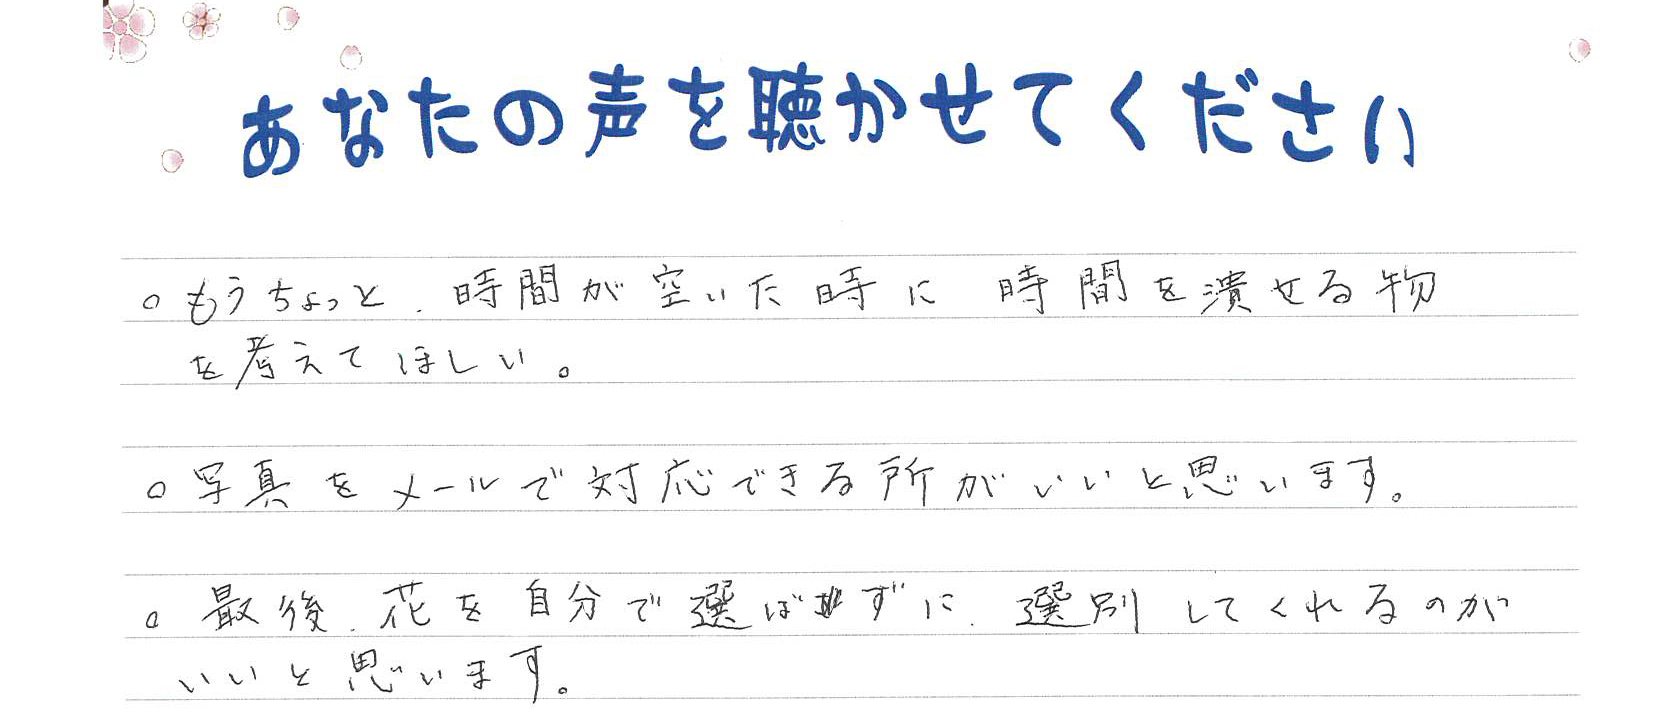 あなたの声を聴かせてください
○ もうちょっと、時間が空いた時に 時間を潰せる物
を考えてほしい。
○ 写真をメールで対応できる所がいいと思います。
○ 最後、花を自分で選ばずに、選別してくれるのが
いいと思います。